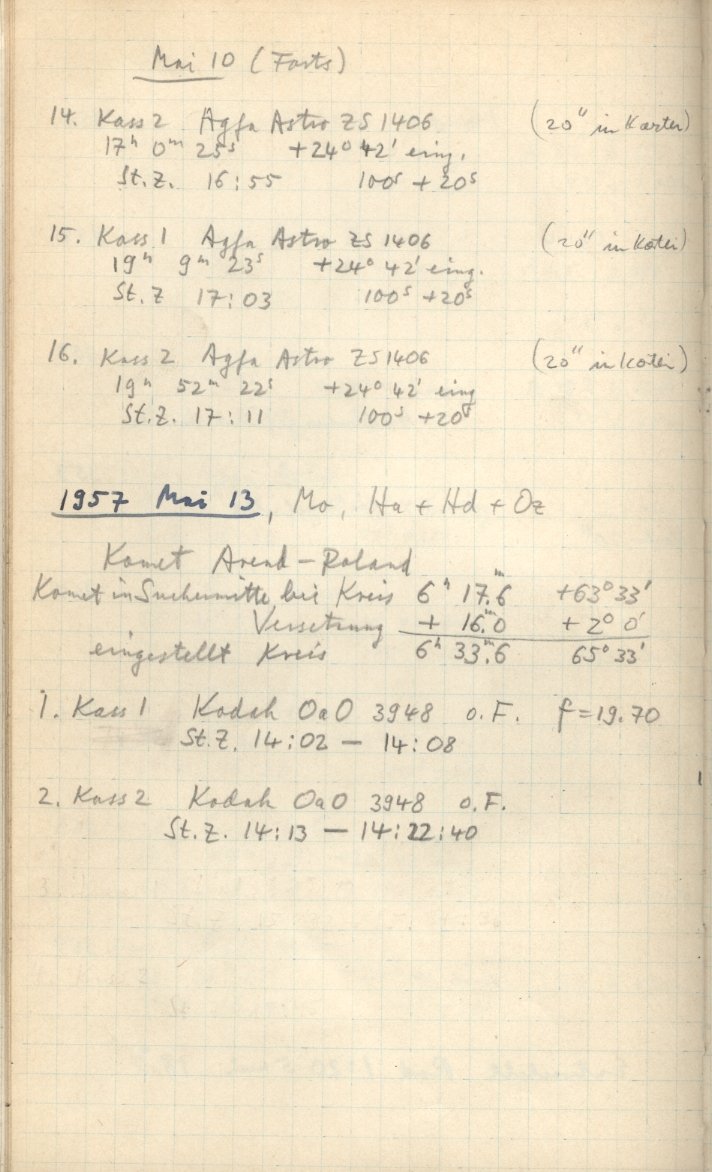 Mai 10 (Forts)
14. Kass 2 Agfa Astro ZS 1406 (20" in Kartei)
17h 0m 25s +24° 42' eing.
St.Z. 16:55 100s + 20s
15. Kass 1 Agfa Astro ZS 1406 (20" in Kartei)
19h 9m 23s +24° 42' eing.
St.Z 17:03 100s +20s
16. Kass 2 Agfa Astro ZS 1406 (20" in Kartei)
19h 52m 22s +24° 42' eing
St.Z. 17:11 100s +20s
1957 Mai 13, Mo, Ha + Hd + Oz
Komet Arend-Roland
Komet in Suchermitte bei Kreis 6h 17m.6 +63° 33'
Versetzung + 16m.0 + 2° 0'
eingestellt Kreis 6h 33m.6 65° 33'
1. Kass 1 Kodak OaO 3948 o.F. f=19.70
St.Z. 14:02 — 14:08
2. Kass 2 Kodak OaO 3948 o.F.
St.Z. 14:13 — 14:22:40